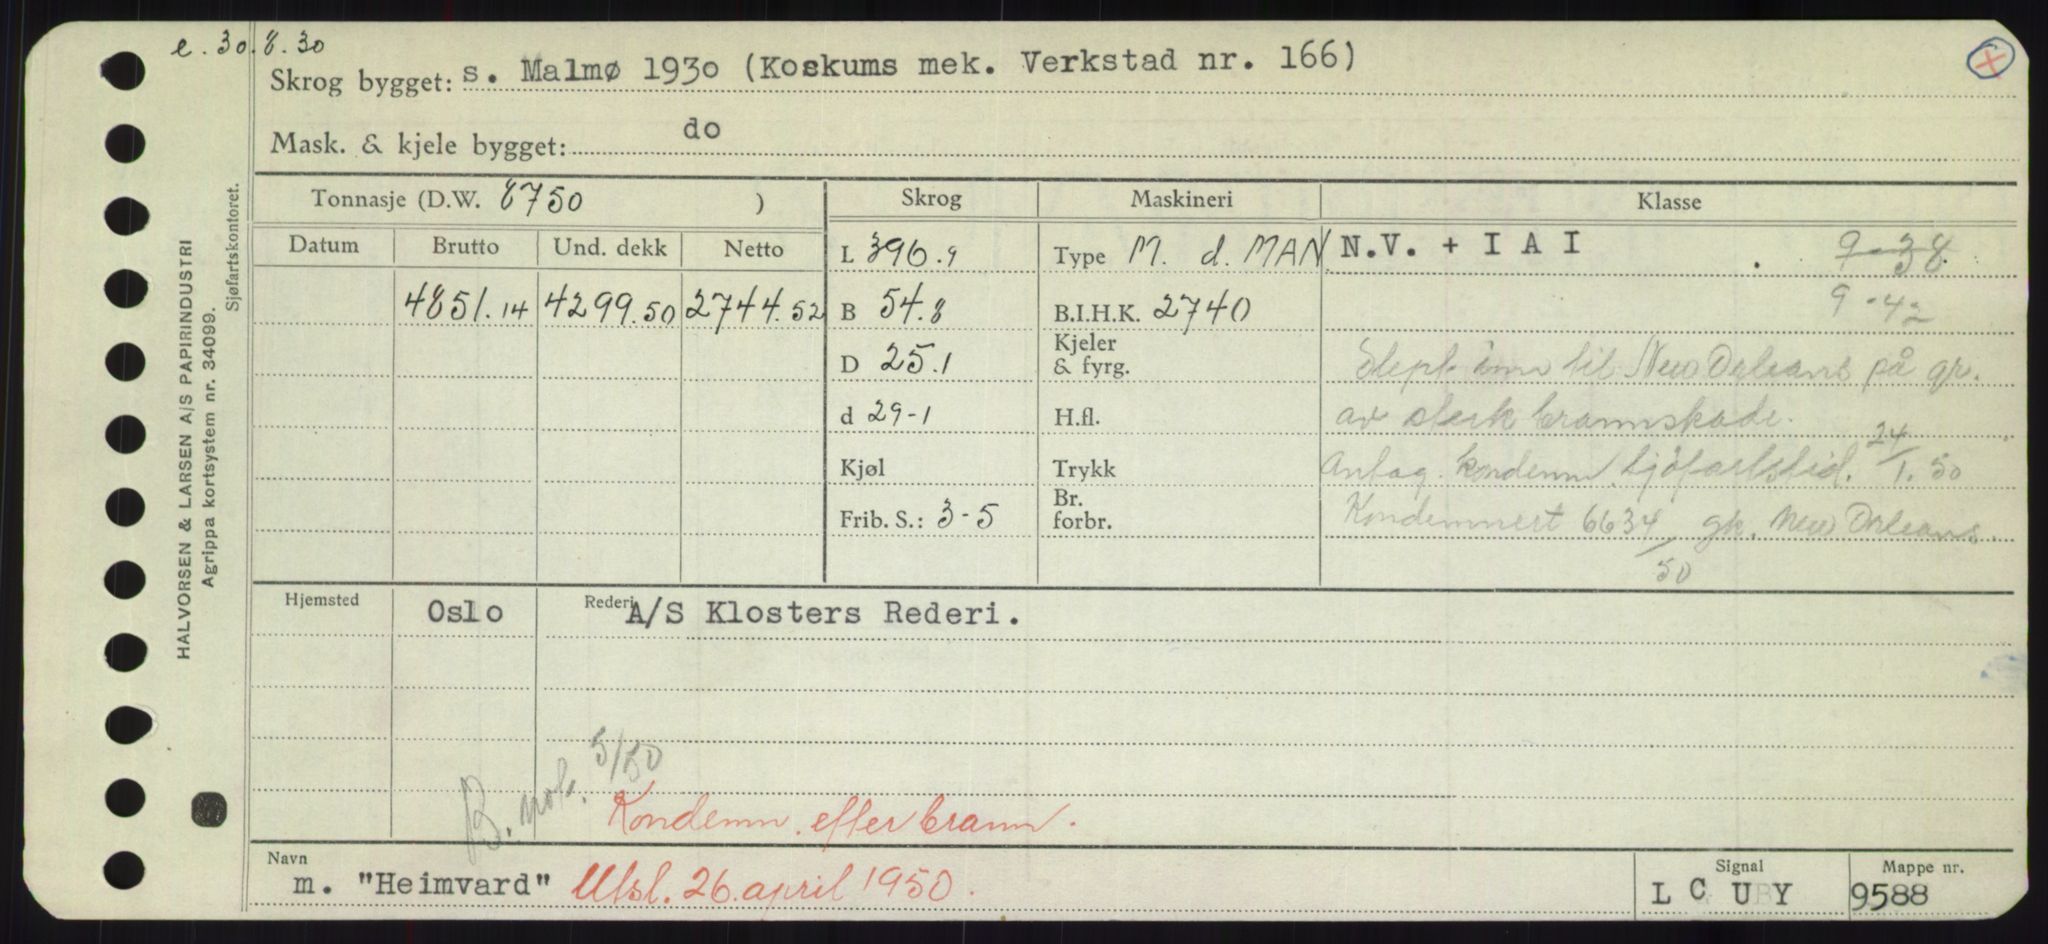 e. 30.8.30
Skrog bygget: s. Malmø 1930 (Kockums mek. Verkstad nr. 166)
Mask. & kjele bygget: do
Tonnasje (D.W. 8750 ) Skrog Maskineri Klasse
Datum Brutto Und. dekk Netto L 396.9 Type M. d. MAN N.V. + I A I . 9-38
4851.14 4299.50 2744.52 B 54.8 B.I.H.K. 2740 9-42
D 25.1 Kjeler & fyrg. Slept inn til New Orleans på gr.
d 29-1 H.fl. av sterk brannskade.
Kjøl Trykk Antag. kondemn. Sjöfartstid. 24/1.50
Frib. S.: 3-5 Br. forbr. Kondemnert 6634/50 gk. New Orleans.
Hjemsted Oslo Rederi A/S Klosters Rederi.
B. nok. 5/50
Kondemn. efter brann.
Navn m. "Heimvard" Utsl. 26. april 1950. Signal L C U Y Mappe nr. 9588
HALVORSEN & LARSEN A/S PAPIRINDUSTRI
Agrippa kortsystem nr. 34099.
Sjøfartskontoret.